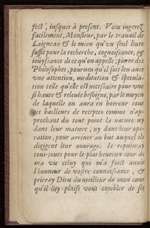 fect, iusques à present. Vous iugerez
facilement, Monsieur, par le trauail de
Laigneau & le mien qu'un seul liure
suffit pour la recherche, cognoissance, &
iouyssance de ce qu'on appelle, pierre des
Philosophes, pourueu qu'il soit leu auec
une attention, meditation & specula-
tion telle qu'elle est necessaire pour une
si haute & releuée besoigne, par le moyen
de laquelle on aura en horreur tous
ces bailleurs de receptes comme n'ap-
prochant du tout point la nature ny
dans leur matiere, ny dans leur ope-
ration, pour arriuer au but auquel ils
dirigent leur ouurage. Ie reputeray
tous-jours pour le plus heureux iour de
ma vie celuy qui m'a faict auoir
l'honneur de vostre cognoissance, &
prieray Dieu du meilleur de mon cœur
qu'il luy plaise vous combler de ses